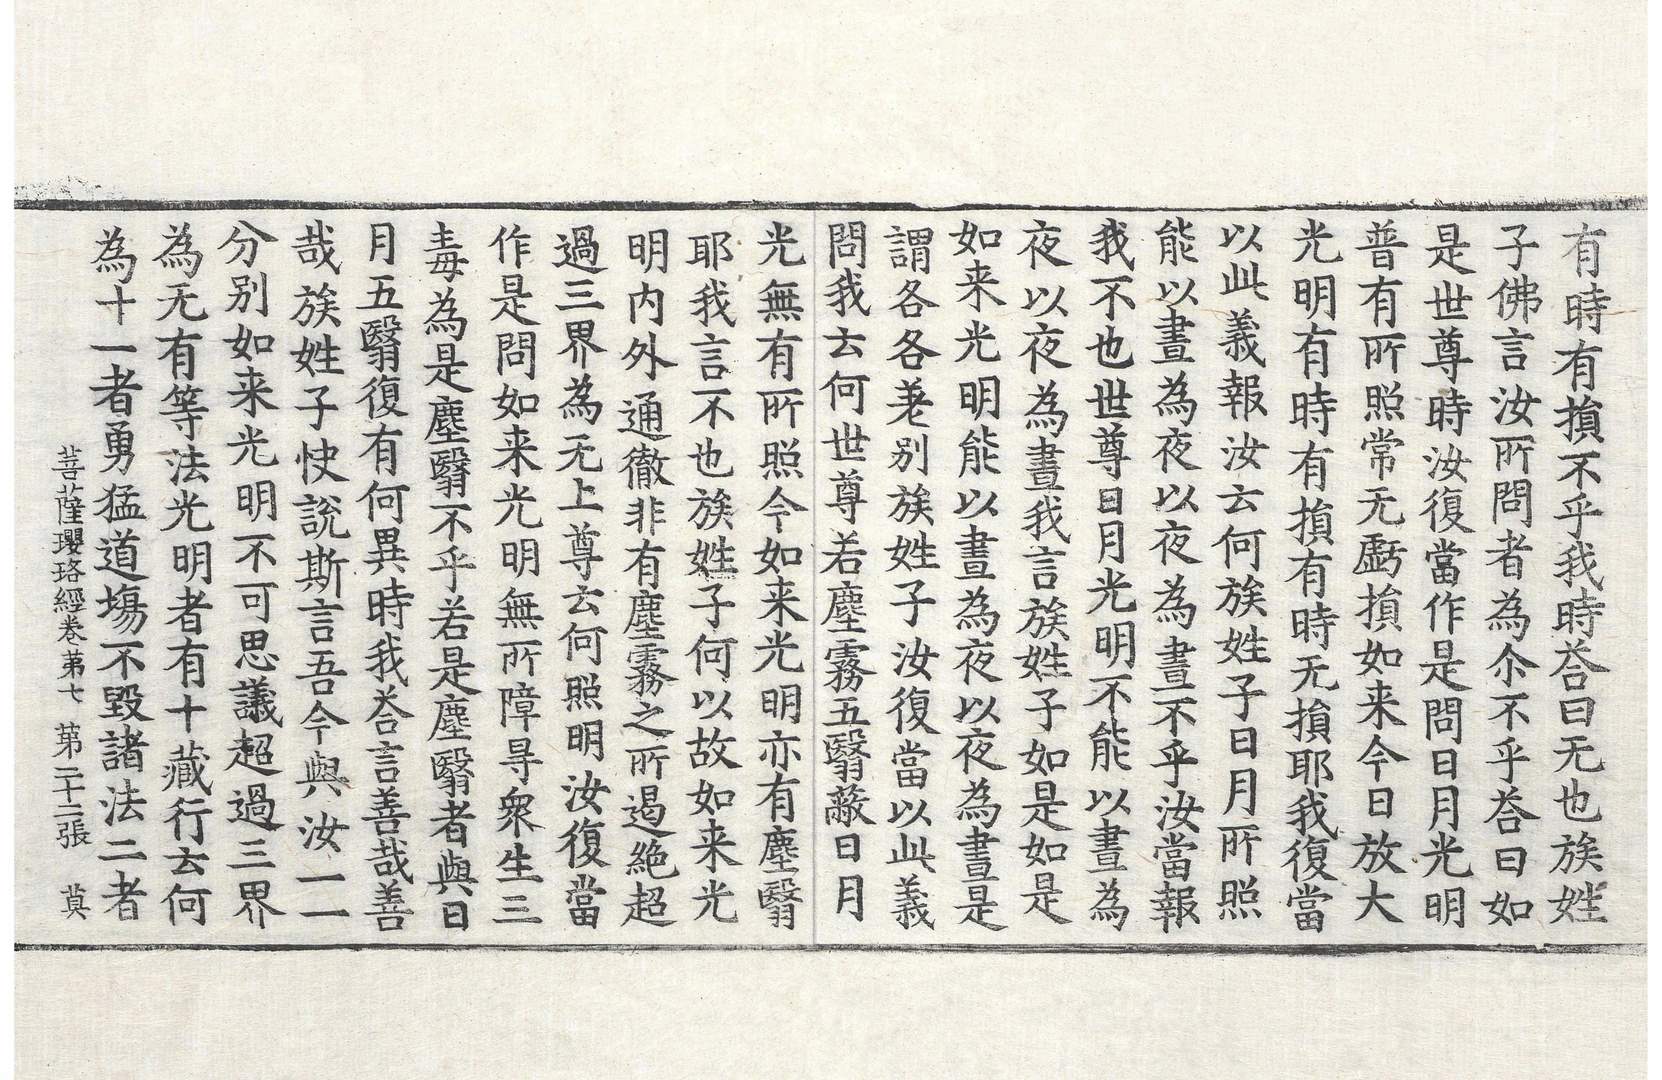 有時有損不乎我時荅曰无也族姓
子佛言汝所問者為尒不乎荅曰如
是世尊時汝復當作是問日月光明
普有所照常无虧損如来今日放大
光明有時有損有時无損耶我復當
以此義報汝云何族姓子日月所照
能以晝為夜以夜為晝不乎汝當報
我不也世尊日月光明不能以晝為
夜以夜為晝我言族姓子如是如是
如来光明能以晝為夜以夜為晝是
謂各各差别族姓子汝復當以此義
問我云何世尊若塵霧五翳蔽日月
光無有所照今如来光明亦有塵翳
耶我言不也族姓子何以故如来光
明内外通徹非有塵霧之所遏絶超
過三界為无上尊云何照明汝復當
作是問如来光明無所障㝵衆生三
毒為是塵翳不乎若是塵翳者與日
月五翳復有何異時我荅言善哉善
哉族姓子快說斯言吾今與汝一一
分别如来光明不可思議超過三界
為无有等法光明者有十藏行云何
為十一者勇猛道場不毀諸法二者
菩薩瓔珞經卷第七　第二十二張　莫